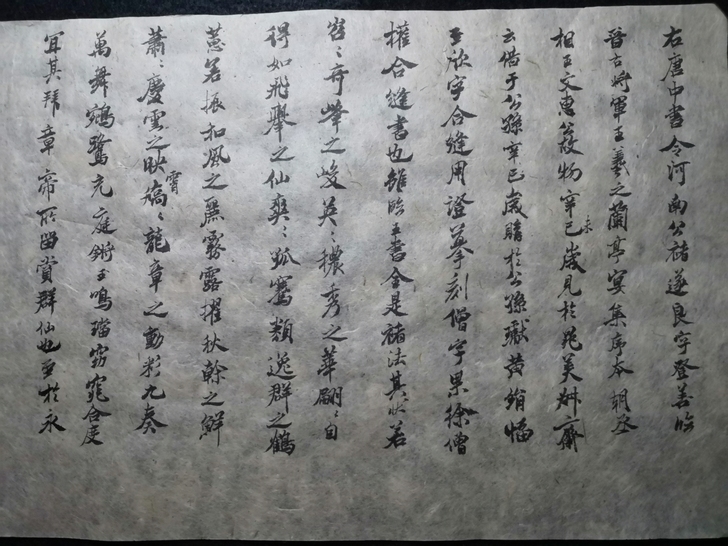 右唐中書令河南公褚遂良字登善臨
晉右將軍王羲之蘭亭宴集序本朝丞
相王文惠公故物辛未巳歲見於晁美叔齋
云借于公孫辛巳歲購於公孫瓛黃絹幅
至欣字合縫用證摹刻僧字果徐僧
權合縫書也雖臨王書全是褚法其狀若
岩〻奇峰之峻英〻穠秀之華翩〻自
得如飛舉之仙爽〻孤騫類逸群之鶴
蕙若振和風之麗霧露擢秋幹之鮮
蕭〻慶雲之映霄矯〻龍章之動彩九奏
萬舞鵷鷺充庭鏘玉鳴璫窈窕合度
宜其拜章帝所留賞群仙也至於永